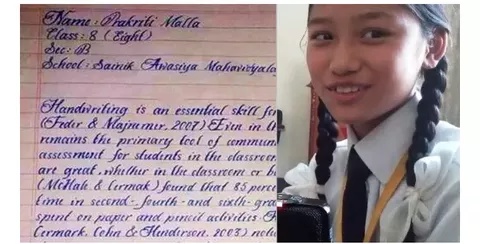 Name : Prakriti Malla
Class : 8 (Eight)
Sec : B
School : Sainik Awasiya Mahavidyala
Handwriting is an essential skill for
(Feder & Majnumer, 2007) Even in th
remains the primary tool of commun
assessment for students in the classroom
are great, whether in the classroom or b
(McHah & Cermak) found that 85 perce
time in second- fourth- and sixth- gra
spent on paper and pencil activities.
Cermark, Cohn & Henderson, 2003) no